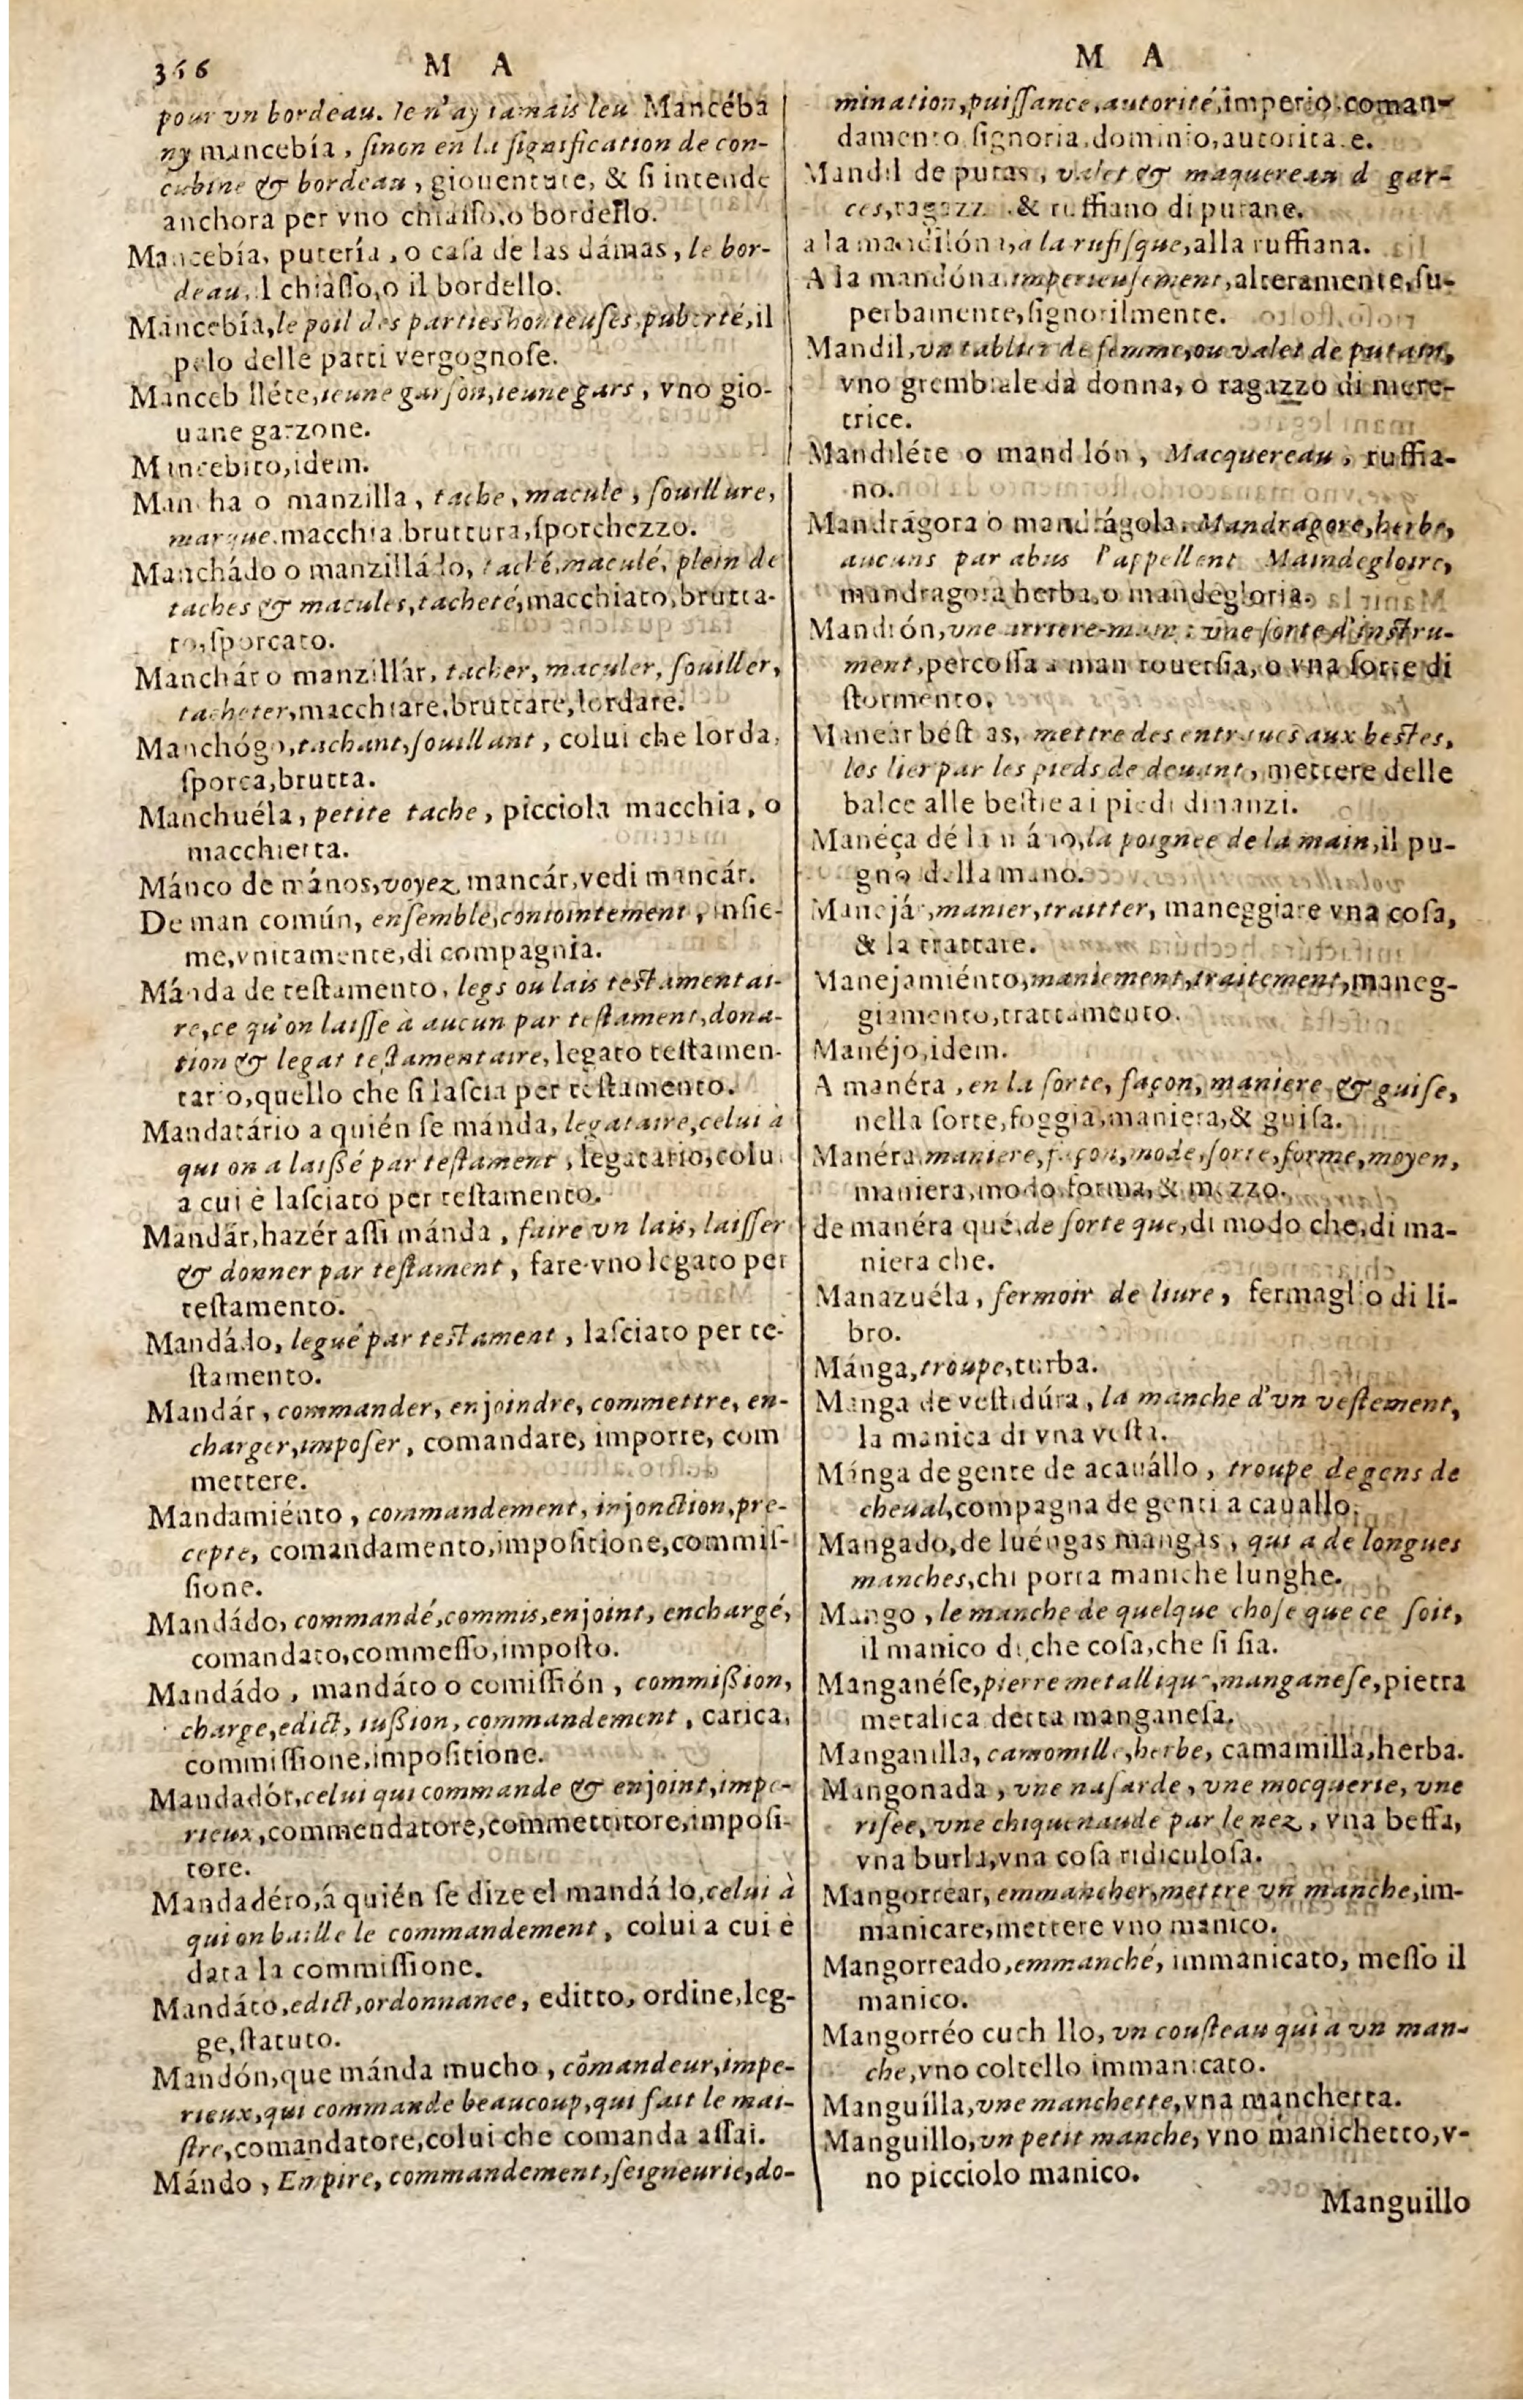 366 M A
pour vn bordeau. Ie n'ay iamais leu Mancéba
ny mancebía, sinon en la signification de con-
cubine & bordeau, giouentute, & si intende
anchora per vno chiasso, o bordello.
Mancebía, putería, o casa de las dámas, le bor-
deau, il chiasso, o il bordello.
Mancebía, le poil des parties honteuses, puberté, il
pelo delle parti vergognose.
Manceb lléte, ieune garson, ieune gars, vno gio-
uane garzone.
Mancebito, idem.
Mancha o manzilla, tache, macule, souillure,
marque, macchia, bruttura, sporchezzo.
Manchádo o manzilládo, taché, maculé, plein de
taches & macules, tacheté, macchiato, brutta-
to, sporcato.
Manchár o manzillár, tacher, maculer, souiller,
tacheter, macchiare, bruttare, lordare.
Manchógo, tachant, souillant, colui che lorda,
sporca, brutta.
Manchuéla, petite tache, picciola macchia, o
macchietta.
Mánco de mános, voyez mancár, vedi mancár.
De man común, ensemble, conioıntement, insie-
me, vnitamente, di compagnia.
Mánda de testamento, legs ou lais testamentai-
re, ce qu'on laisse à aucun par testament, dona-
tion & legat testamentaire, legato testamen-
tario, quello che si lascia per testamento.
Mandatário a quién se mánda, legataire, celui à
qui on a laißé par testament, legatario, colui
a cui è lasciato per testamento.
Mandár, hazér assi mánda, faire vn lais, laisser
& donner par testament, fare vno legato per
testamento.
Mandádo, legué par testament, lasciato per te-
stamento.
Mandár, commander, enjoindre, commettre, en-
charger, imposer, comandare, imporre, com
mettere.
Mandamiénto, commandement, injonction, pre-
cepte, comandamento, impositione, commis-
sione.
Mandádo, commandé, commis, enjoint, enchargé,
comandato, commesso, imposto.
Mandádo, mandáto o comissión, commißion,
charge, edict, iußion, commandement, carica,
commissione, impositione.
Mandadór, celui qui commande & enjoint, impe-
rieux, commendatore, commettitore, imposi-
tore.
Mandadéro, á quién se dize el mandá lo, celui à
qui on baille le commandement, colui a cui è
data la commissione.
Mandáto, edict, ordonnance, editto, ordine, leg-
ge, statuto.
Mandón, que mánda mucho, cõmandeur, impe-
rieux, qui commande beaucoup, qui fait le mai-
stre, comandatore, colui che comanda assai.
Mándo, Empire, commandement, seigneurie, do-
M A
mination, puissance, autorité, imperio, coman-
damento, signoria, dominio, autorita e.
Mandil de putas, valet & maquereau d gar-
ces, ragazz . & ruffiano di putane.
a la mandilóna, a la rufisque, alla ruffiana.
A la mandóna, imperieusement, alteramente, su-
perbamente, signorilmente.
Mandil, vn tablier de femme, ou valet de putain,
vno grembiale da donna, o ragazzo di mere-
trice.
Mandiléte o mand lón, Macquereau, ruffia-
no.
Mandrágora o mandrágola, Mandragore, herbe,
aucuns par abus l'appellent Maindegloire,
mandragora herba, o mandegloria.
Mandrón, vne arriere-main: vne sorte d'instru-
ment, percossa a man rouersia, o vna sorte di
stormento.
Maneár béstias, mettre des entraues aux bestes,
les lier par les pieds de deuant, mettere delle
balce alle bestie a i piedi dinanzi.
Manéça dé la máno, la poignee de la main, il pu-
gno della mano.
Manejár, manier, traitter, maneggiare vna cosa,
& la trattare.
Manejamiénto, maniement, traitement, maneg-
giamento, trattamento.
Manéjo, idem.
A manéra, en la sorte, façon, maniere & guise,
nella sorte, foggia, maniera, & guisa.
Manéra, maniere, façon, mode, sorte, forme, moyen,
maniera, modo, forma, & mezzo.
de manéra qué, de sorte que, di modo che, di ma-
niera che.
Manazuéla, fermoir de liure, fermaglio di li-
bro.
Mánga, troupe, turba.
Manga de vestidúra, la manche d'vn vestement,
la manica di vna vesta.
Mánga de gente de acauállo, troupe de gens de
cheual, compagna de genti a cauallo.
Mangado, de luéngas mangas, qui a de longues
manches, chi porta maniche lunghe.
Mango, le manche de quelque chose que ce soit,
il manico di che cosa, che si sia.
Manganése, pierre metallique, manganese, pietra
metalica detta manganesa.
Manganilla, camomille, herbe, camamilla, herba.
Mangonada, vne nasarde, vne mocquerie, vne
risee, vne chiquenaude par le nez, vna beffa,
vna burla, vna cosa ridiculosa.
Mangorrear, emmancher, mettre vn manche, im-
manicare, mettere vno manico.
Mangorreado, emmanché, immanicato, messo il
manico.
Mangorréo cuch llo, vn cousteau qui a vn man-
che, vno coltello immanicato.
Manguilla, vne manchette, vna manchetta.
Manguillo, vn petit manche, vno manichetto, v-
no picciolo manico.
Manguillo